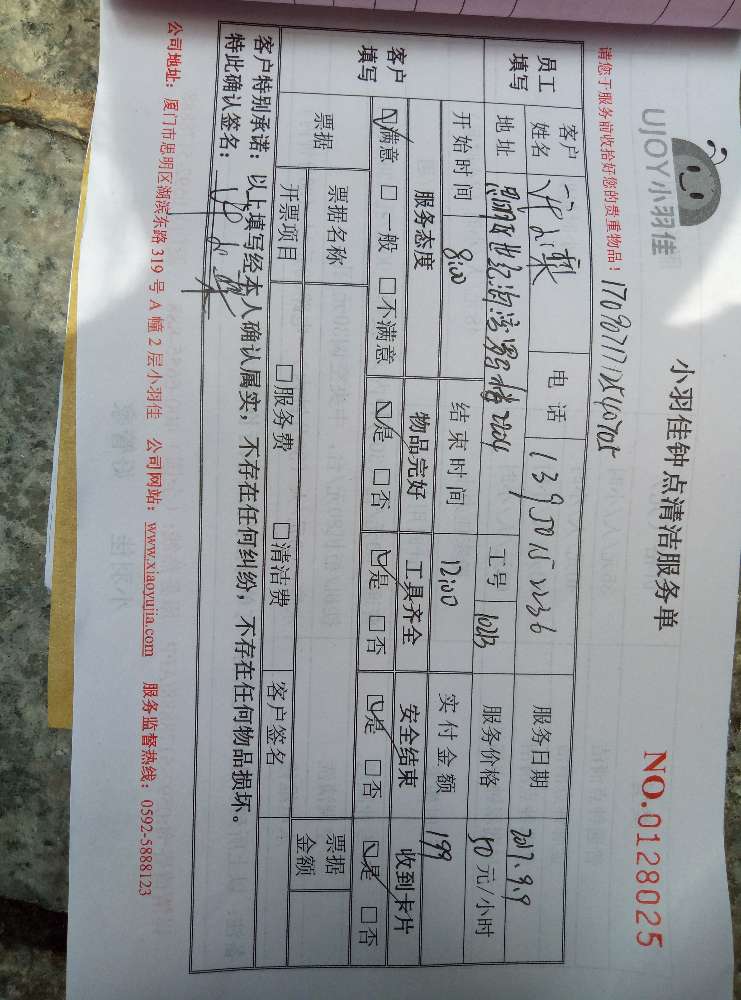 UJOY小羽佳
小羽佳钟点清洁服务单
NO.0128025
请您于服务前收拾好您的贵重物品！
员工填写 客户姓名 电话 13950152236 服务日期 2017.9.9
地址 2204 工号 服务价格 50元/小时
开始时间 8:00 结束时间 12:00 实付金额 199
客户填写 服务态度 物品完好 工具齐全 安全结束 收到卡片
☑满意 □一般 □不满意 ☑是 □否 ☑是 □否 ☑是 □否 ☑是 □否
票据 票据名称 票据金额
开票项目 □服务费 □清洁费 客户签名
客户特别承诺：以上填写经本人确认属实，不存在任何纠纷，不存在任何物品损坏。
特此确认签名：
公司地址：厦门市思明区湖滨东路319号A幢2层小羽佳 公司网站：www.xiaoyujia.com 服务监督热线：0592-5888123